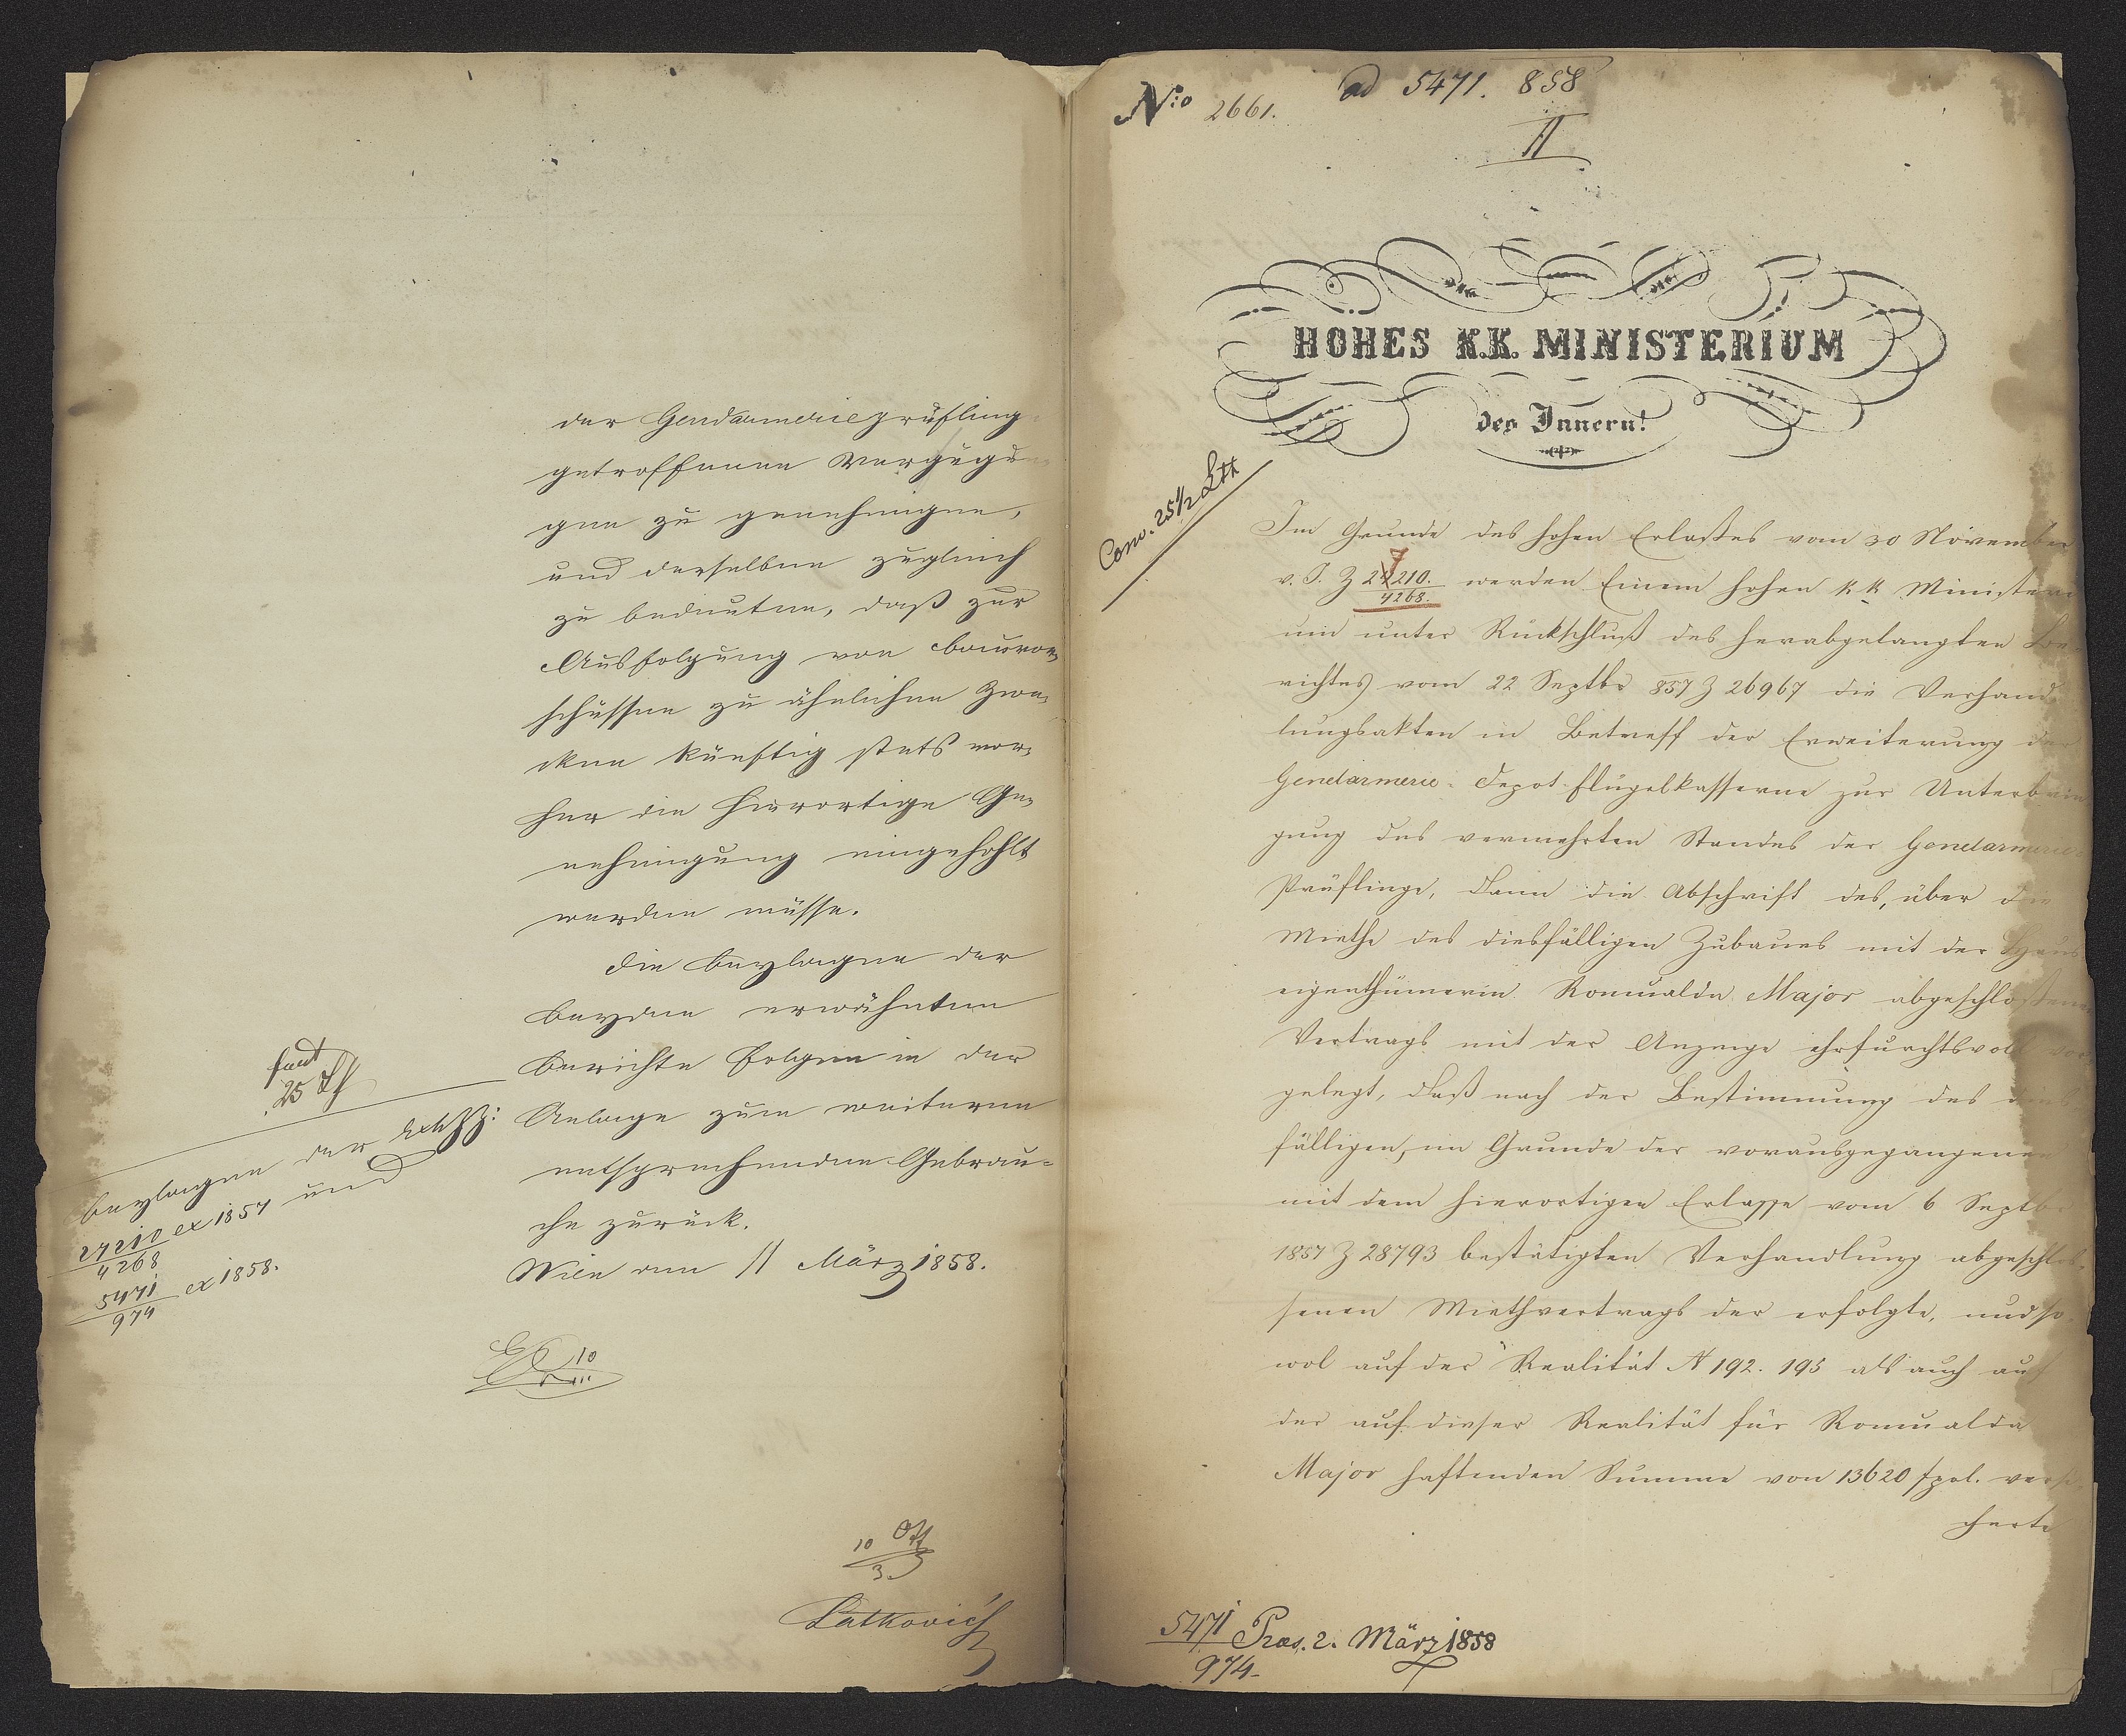 der Gendarmerieprüflinge
getroffenen Verfügun-
gen zu genehmigen,
und derselben zugleich
zu bedeuten, daß zur
Ausfolgung von Bauvor-
schüssen zu ähnlichen Zwe-
cken künftig stets vor-
her die hierortige Ge-
nehmigung eingehohlt
werden müsse.
Die Beylagen der
beyden erwähnten
Berichte folgen in der
Anlage zum weiteren
entsprechenden Gebrau-
che zurück.
Wien am 11 März 1858.
10
III
10
3
Latkovich
25
Beylagen der
27210 ex 1857 und
4268
5471 ex 1858.
974
No 2661.
ad 5471. 858
II
HOHES K.K. MINISTERIUM
des Innern!
Conv. 25 1/2 Ltt
Im Grunde des hohen Erlaßes vom 30 November
v. J. Z 27210. werden Einem hohen k k Ministeri
4268.
um unter Rückschluß des herabgelangten Be-
richtes vom 22 Septbr 857 Z 26967 die Verhand-
lungsakten in Betreff der Erweiterung der
Gendarmerie-Depot-Flügelkasserne zur Unterbrin
gung des vermehrten Standes der Gendarmerie-
Prüflinge, dann die Abschrift des, über die
Miethe des diesfälligen Zubaues mit der Haus
eigenthümerin Romualda Major abgeschloßenen
Vertrags mit der Anzeige ehrfurchtsvoll vor
gelegt, daß nach der Bestimmung des dies-
fälligen, im Grunde der vorausgegangenen
mit dem hierortigen Erlasse vom 6 Septbr
1857 Z 28793 bestätigten Verhandlung abgeschlos-
senen Miethvertrags der erfolgte, und so-
wol auf der Realität N 192. 195 als auch auf
der auf dieser Realität für Romualda
Major haftenden Summe von 13620 fpol. versi-
cherte
5471 Praes. 2. März 1858
974